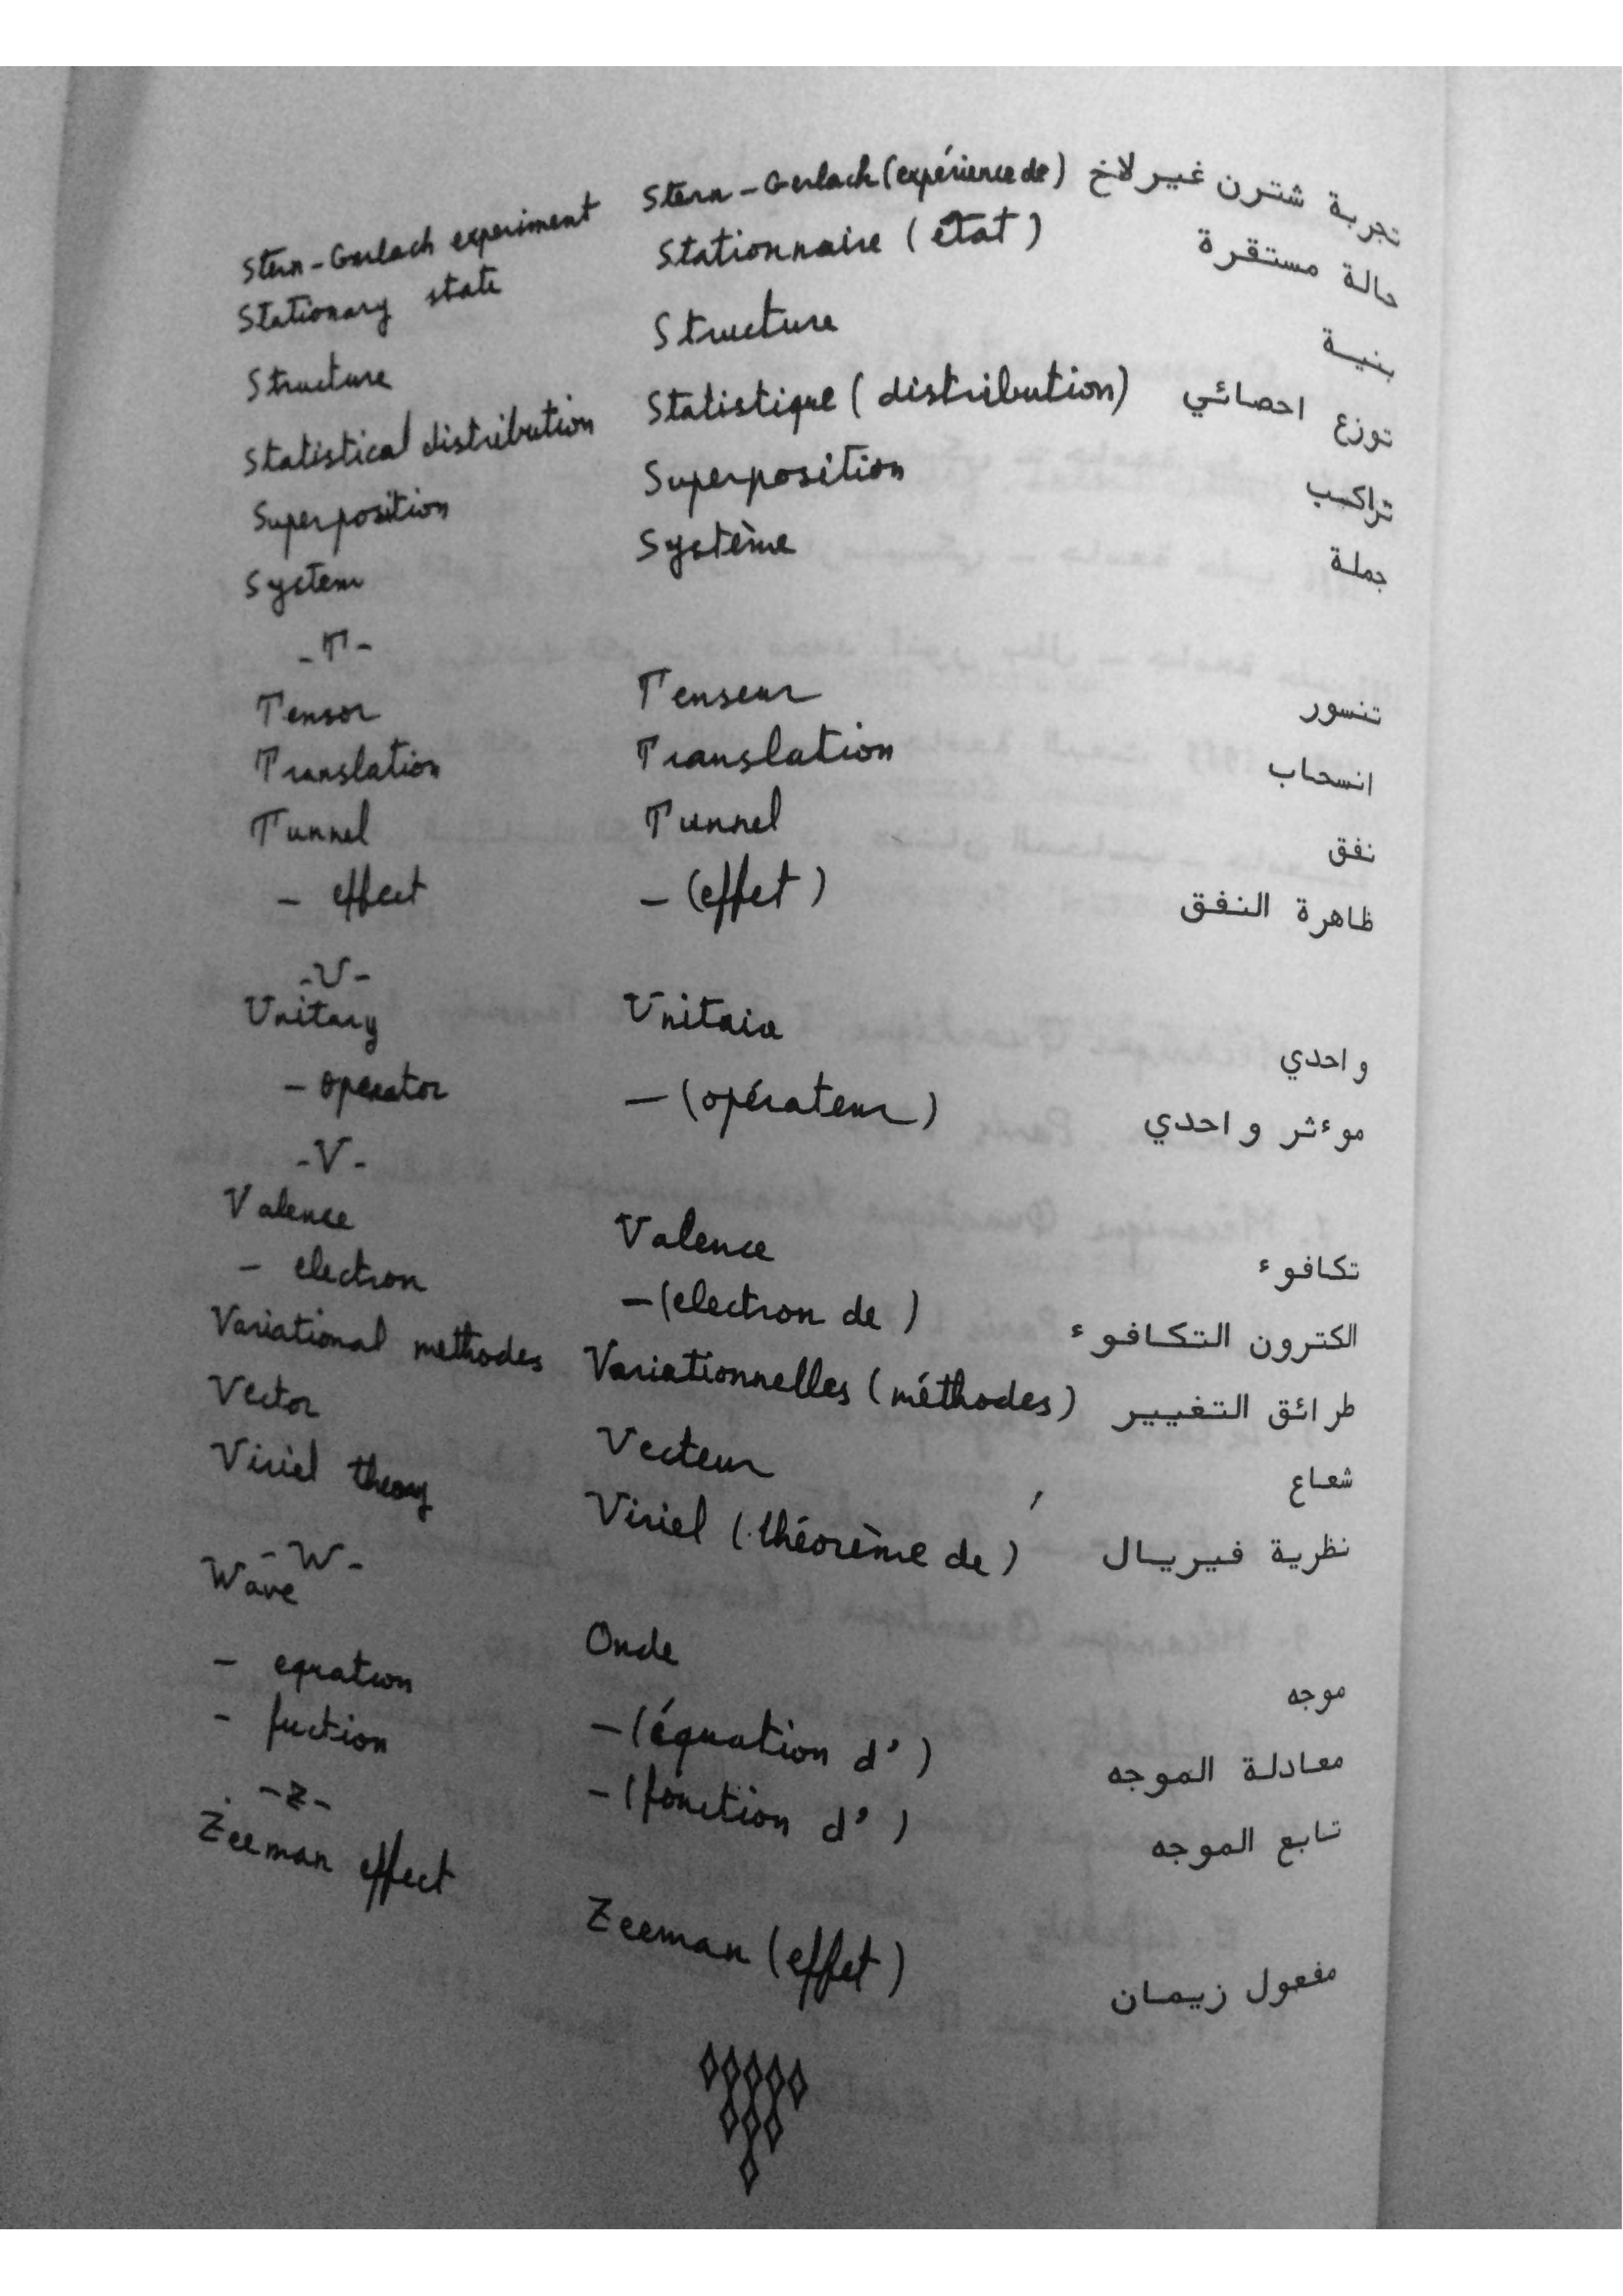 Stern-Gerlach experiment Stern-Gerlach (expérience de) تجربة شترن غيرلاخ
Stationary state Stationnaire (état) حالة مستقرة
Structure Structure بنية
Statistical distribution Statistique (distribution) توزع احصائي
Superposition Superposition تراكب
System Système جملة
-T-
Tensor Tenseur تنسور
Translation Translation انسحاب
Tunnel Tunnel نفق
- effect - (effet) ظاهرة النفق
-U-
Unitary Unitaire واحدي
- operator - (opérateur) موءثر واحدي
-V-
Valence Valence تكافوء
- electron - (electron de) الكترون التكافوء
Variational methodes Variationnelles (méthodes) طرائق التغيير
Vector Vecteur شعاع
Viriel theory Viriel (théorème de) نظرية فيريال
-W-
Wave Onde موجه
- equation - (équation d') معادلة الموجه
- fuction - (fonction d') تابع الموجه
-Z-
Zeeman effect Zeeman (effet) مفعول زيمان